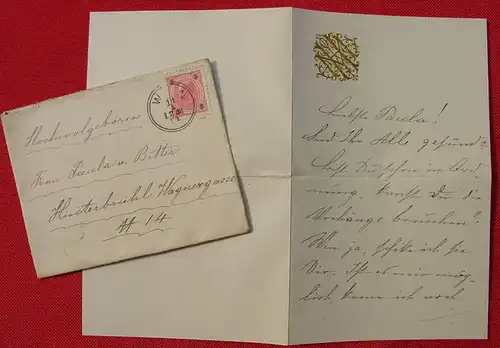 Hochwolgeboren
Frau Paula v. Bitter
Hinterbrühl Wagnergasse
№ 14
Liebste Paula!
Sind Ihr Alle gesund?
bist Du schon in Ord-
nung. Kannst Du die
Vorhänge brauchen?
Wenn ja, schike ich sie
Dir. Ist es mir mög-
lich, komme ich noch